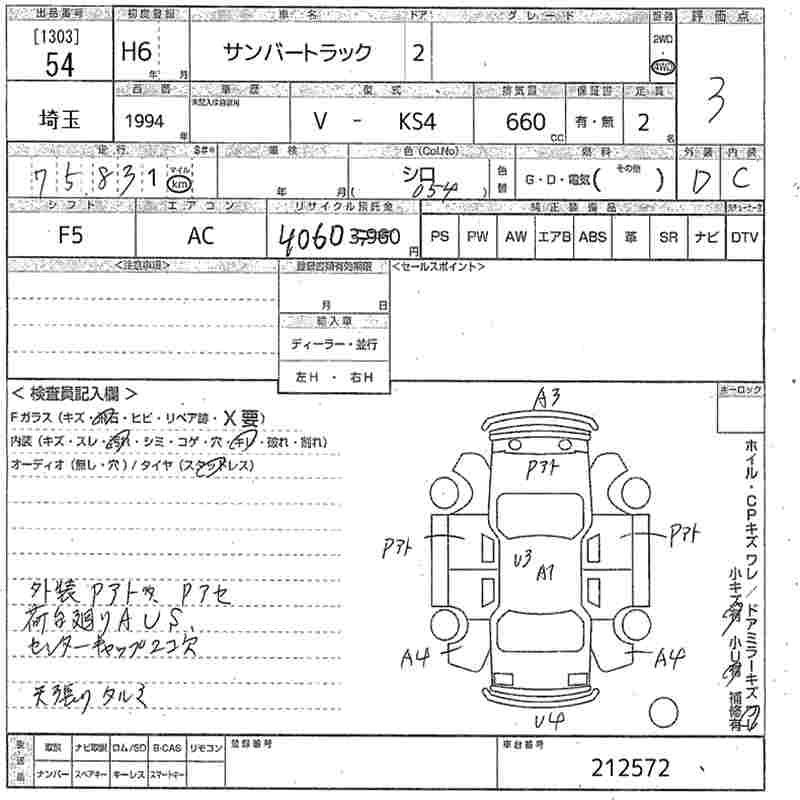 出品番号 初度登録 車名 ドア グレード 型番 評価点
[1303]
54 H6 年 月 サンバートラック 2 2WD・4WD 3
西暦 車歴 型式 排気量 保証書 定員
埼玉 1994年 V - KS4 660 CC 有・無 2名
走行 車検 色(Col.No) 燃料 外装 内装
75831 マイル km 年 月 シロ (054) 色替 G・D・電気( その他 ) D C
シフト エアコン リサイクル預託金 純正装備品
F5 AC 4060 3,960円 PS PW AW エアB ABS 革 SR ナビ DTV
<注意事項> 登録書類有効期限 <セールスポイント>
月 日
輸入車
ディーラー・並行
左H ・ 右H
<検査員記入欄> ホーロック
Fガラス(キズ・飛石・ヒビ・リペア跡・X要)
内装(キズ・スレ・汚れ・シミ・コゲ・穴・キレ・破れ・割れ)
オーディオ(無し・穴)/タイヤ(スタッドレス)
A3
Pアト
Pアト
Pアト
U3
A1
A4
A4
U4
外装 Pアト大 Pアセ
荷台廻りAUS、
センターキャップ2コ欠
天張りタルミ
ホイル・CPキズ ワレ/ドアミラーキズ ワレ
小キズ有 小U有 補修有
取説 ナビ取説 ロム/SD B-CAS リモコン 登録番号 車台番号
ナンバー スペアキー キーレス スマートキー 212572